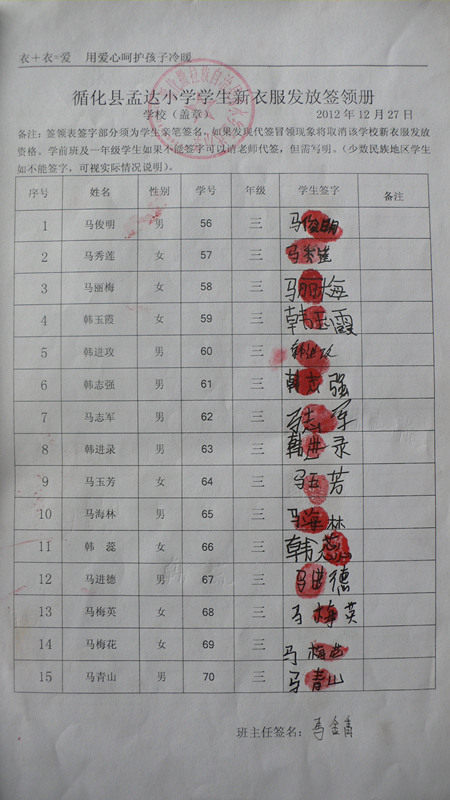 衣+衣=爱 用爱心呵护孩子冷暖
循化县孟达小学学生新衣服发放签领册
学校（盖章） 2012 年 12 月 27 日
备注：签领表签字部分须为学生亲笔签名，如果发现代签冒领现象将取消该学校新衣服发放
资格。学前班及一年级学生如果不能签字可以请老师代签，但需写明。（少数民族地区学生
如不能签字，可视实际情况说明）。
序号 姓名 性别 学号 年级 学生签字 备注
1 马俊明 男 56 三 马俊明
2 马秀莲 女 57 三 马秀莲
3 马丽梅 女 58 三 马丽梅
4 韩玉霞 女 59 三 韩玉霞
5 韩进攻 男 60 三 韩进攻
6 韩志强 男 61 三 韩志强
7 马志军 男 62 三 马志军
8 韩进录 男 63 三 韩进录
9 马玉芳 女 64 三 马玉芳
10 马海林 男 65 三 马海林
11 韩 蕊 女 66 三 韩蕊
12 马进德 男 67 三 马进德
13 马梅英 女 68 三 马梅英
14 马梅花 女 69 三 马梅花
15 马青山 男 70 三 马青山
班主任签名：马金青